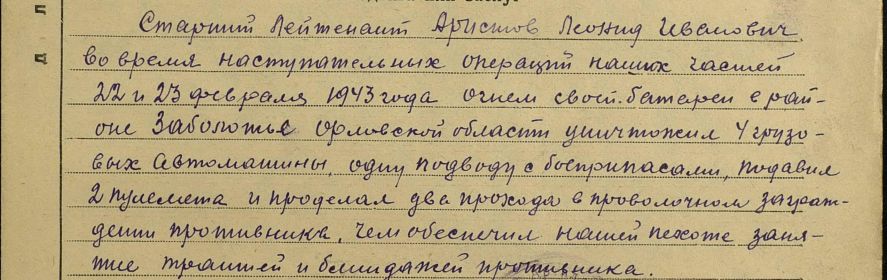 Старший Лейтенант Аристов Леонид Иванович
во время наступательных операций наших частей
22 и 23 февраля 1943 года огнем своей батареи в рай-
оне Заболотье Орловской области уничтожил 4 грузо-
вых автомашины, одну подводу с боеприпасами, подавил
2 пулемета и проделал два прохода в проволочном заграж-
дении противника, чем обеспечил нашей пехоте заня-
тие траншей и блиндажей противника.